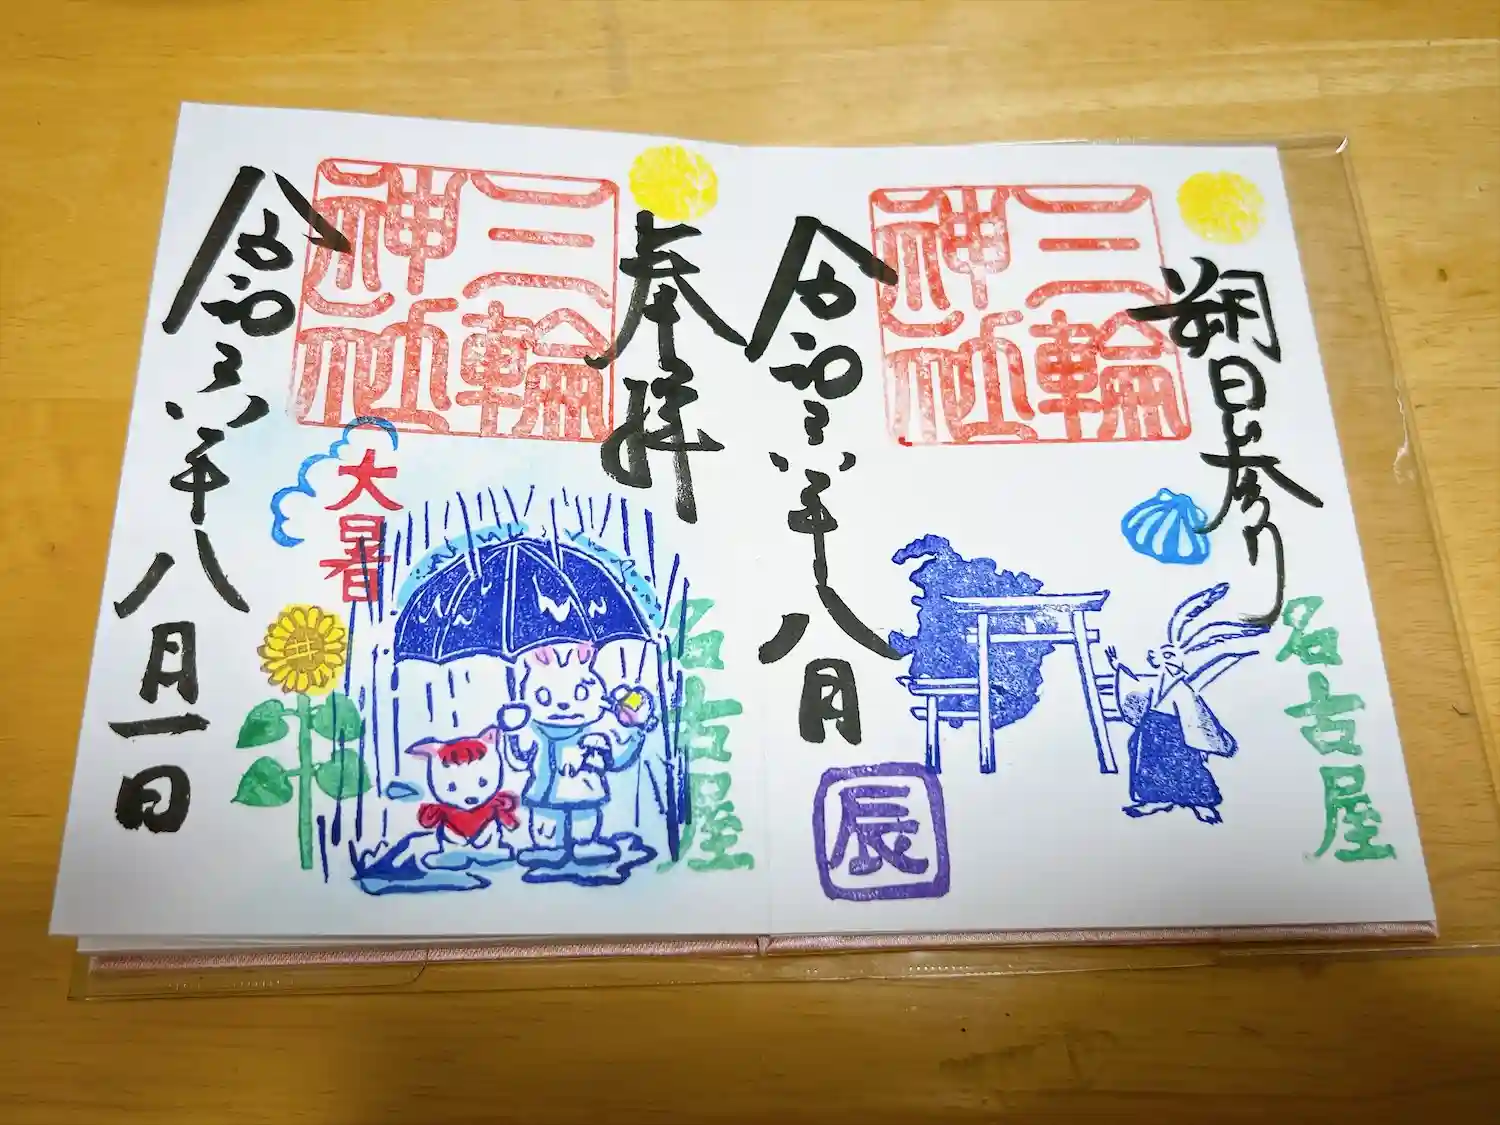 朔日参り
名古屋
三輪神社
令和六年八月
辰
奉拝
名古屋
三輪神社
大暑
令和六年八月一日